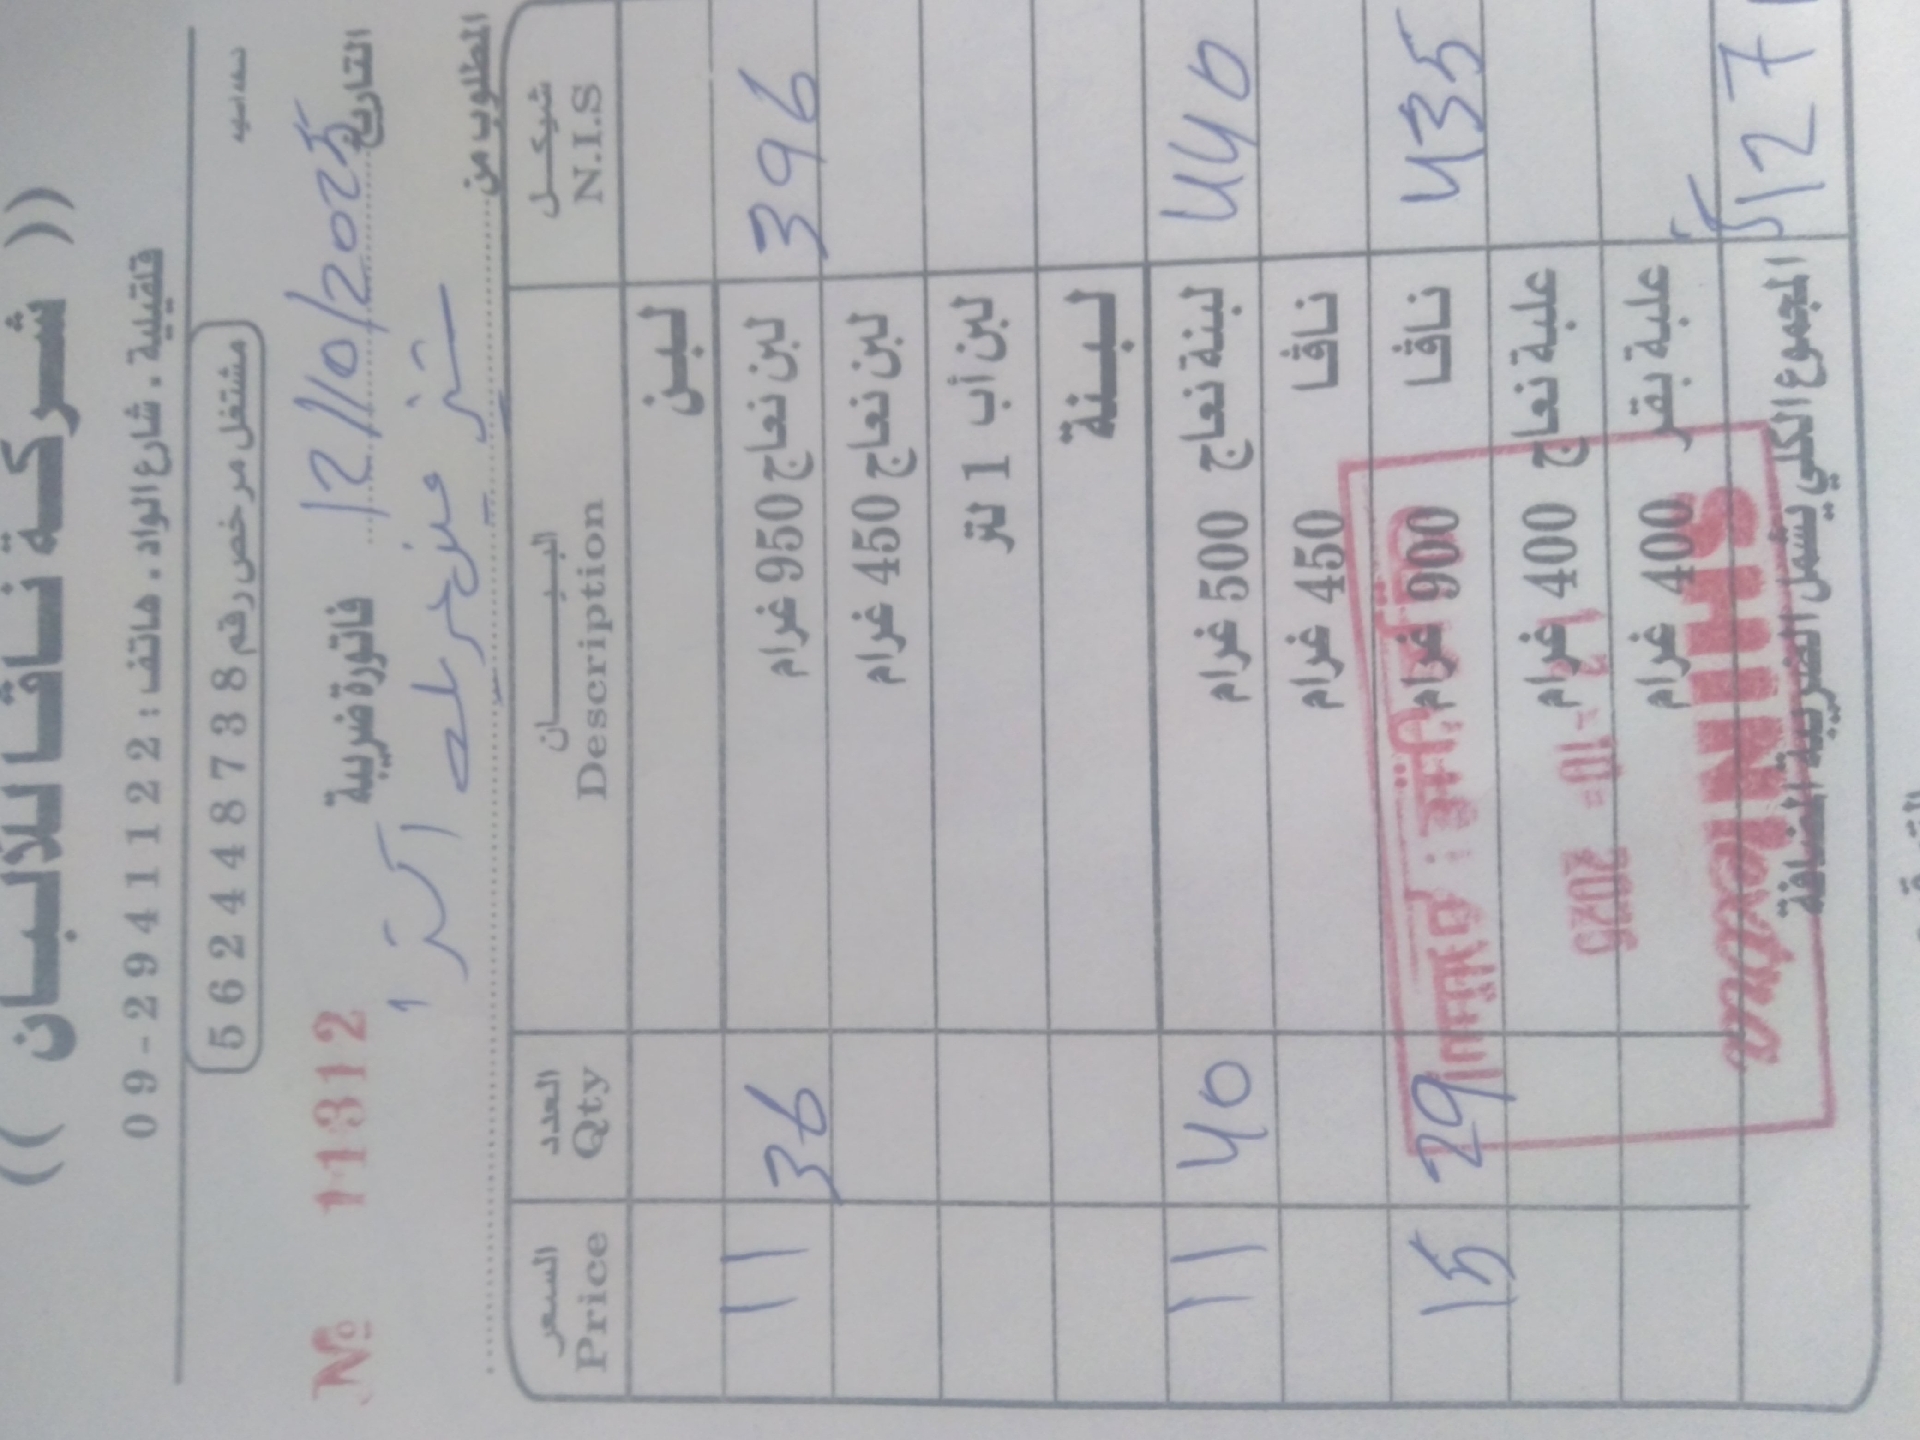 (( شركة نافا للألبان ))
قلقيلية ـ شارع الواد ـ هاتف : 09-2941122
مشتغل مرخص رقم 562448738
№ 11312 فاتورة ضريبية التاريخ 12/10/2025
المطلوب من
السعر العدد البيـــــان شيكـــل
Price Qty Description N.I.S
لبـن
11 36 لبن نعاج 950 غرام 396
لبن نعاج 450 غرام
لبن أب 1 لتر
لبـنة
11 40 لبنة نعاج 500 غرام 440
نافا 450 غرام
15 29 نافا 900 غرام 435
علبة نعاج 400 غرام
علبة بقر 400 غرام
المجموع الكلي يشمل الضريبة المضافة 127
2025 -10-
SHINI extra